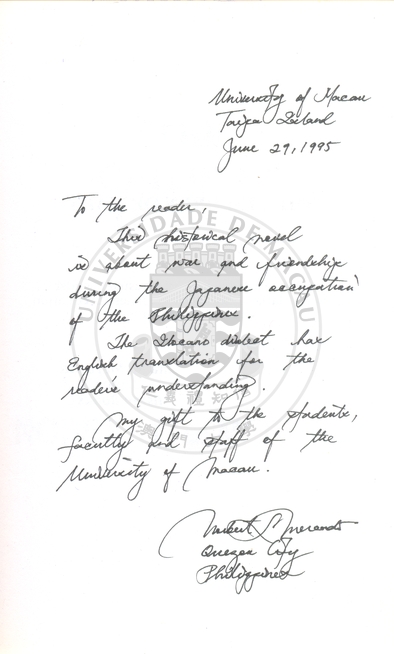 University of Macau
Taipa Island
June 29, 1995
To the reader,
This historical novel
is about war and friendship
during the Japanese occupation
of the Philippines.
The Ilocano dialect has
English translation for the
readers understanding.
My gift to the students,
faculty and staff of the
University of Macau.
Quezon City
Philippines
UNIVERSIDADE DE MACAU